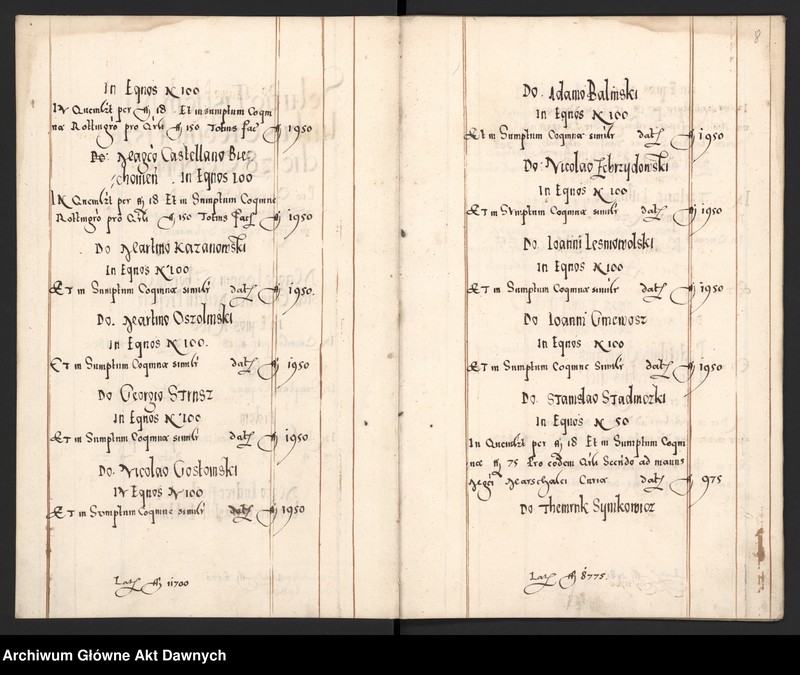 In Equos N 100
In Quemlibt per fl 18 Et in sumptum Coqui
næ Rottmgro pro Qrli fl 150 Totius fac fl 1950
Do: Magco Castellano Biec
In Equos 100
In Quemlibt per fl 18 Et in Sumptum Coquinæ
Rottmgro pro Qrli fl 150 Totius fac fl 1950
Do Martino Kazanowski
In Equos N 100
Et in Sumptum Coquinæ simili dat fl 1950.
Do. Martino Oszolinski
In Equos N 100.
Et in Sumptum Coquinæ simili dat fl 1950
Do Georgio Strusz
In Equos N 100
Et in Sumptum Coquinæ simili dat fl 1950
Do. Nicolao Gostomski
In Equos N 100
Et in Sumptum Coquinæ simili dat fl 1950
Lat fl 11700
8
Do. Adamo Balinski
In Equos N 100
Et in Sumptum Coquinæ simili dat fl 1950
Do. Nicolao Zebrzydowski
In Equos N 100
Et in Sumptum Coquinæ simili dat fl 1950
Do. Ioanni Lesniowolski
In Equos N 100
Et in Sumptum Coquinæ simili dat fl 1950
Do Ioanni Gniewosz
In Equos N 100
Et in Sumptum Coquinæ Simili dat fl 1950
Do. Stanislao Stadniczki
In Equos N 50
In Quemlibt per fl 18 Et in Sumptum Coqui
næ fl 75 Pro eodem Qrli ad manus
Magci Marschalci Curiæ dat fl 975
Do Themruk Symkowicz
Lat fl 8775.
Archiwum Główne Akt Dawnych